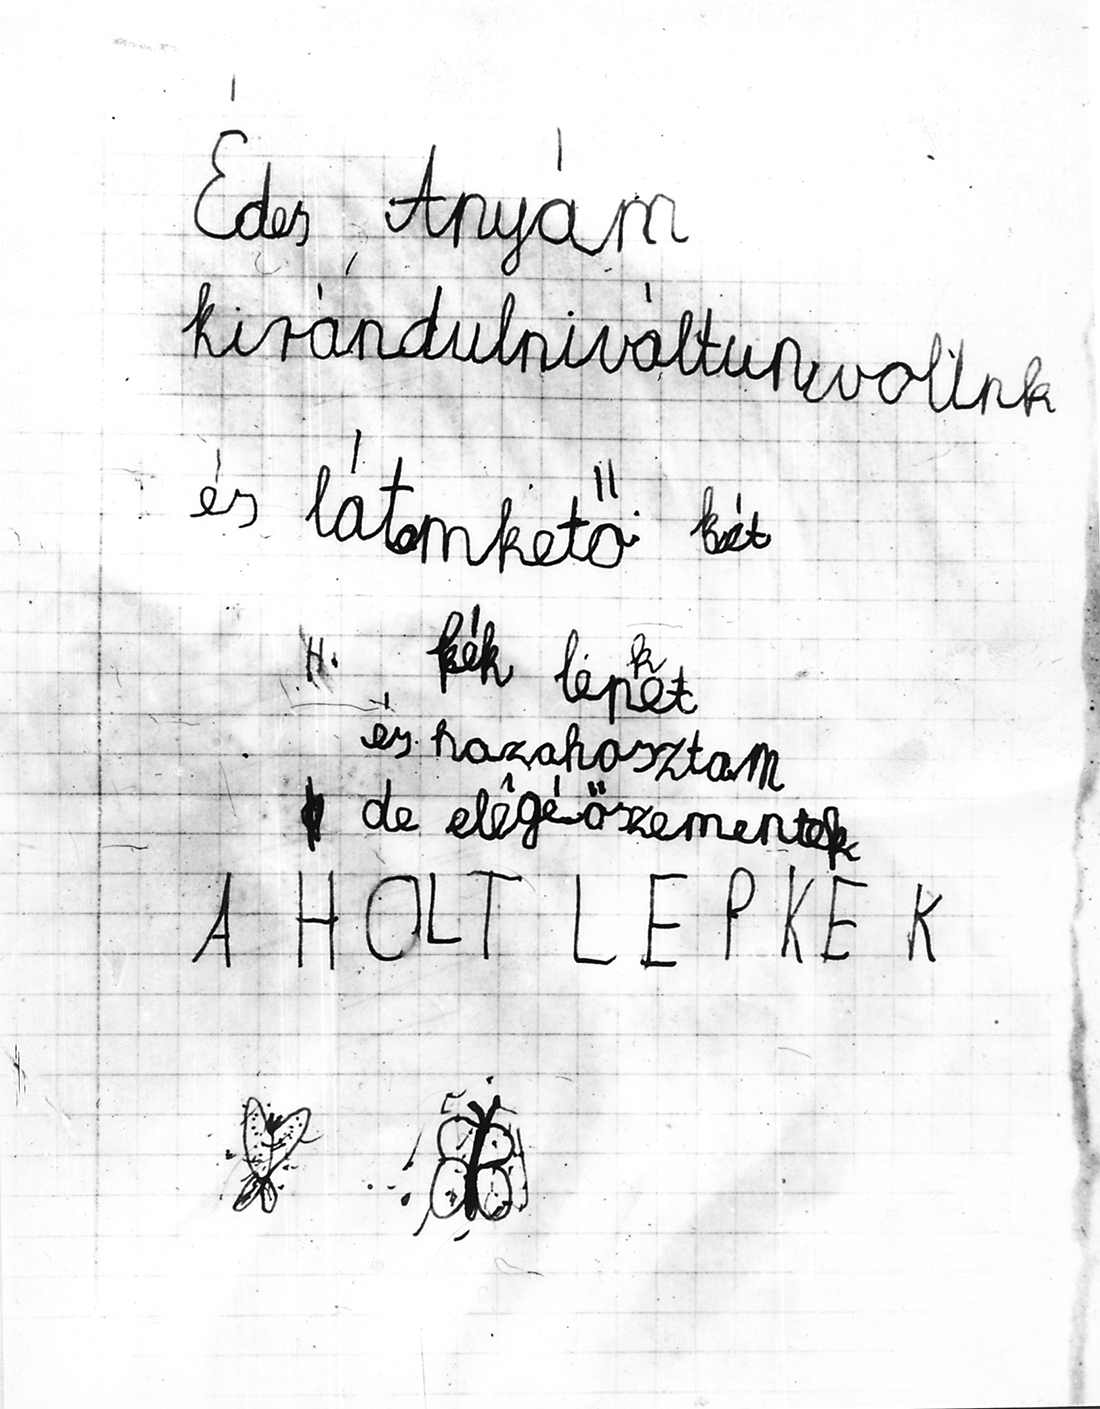 Édes Anyám
kirándulniváltunkvoltnk
és látomkető két
H. kék lepkét
és hazahosztam
de elégéőszementek
A HOLT LEPKEK